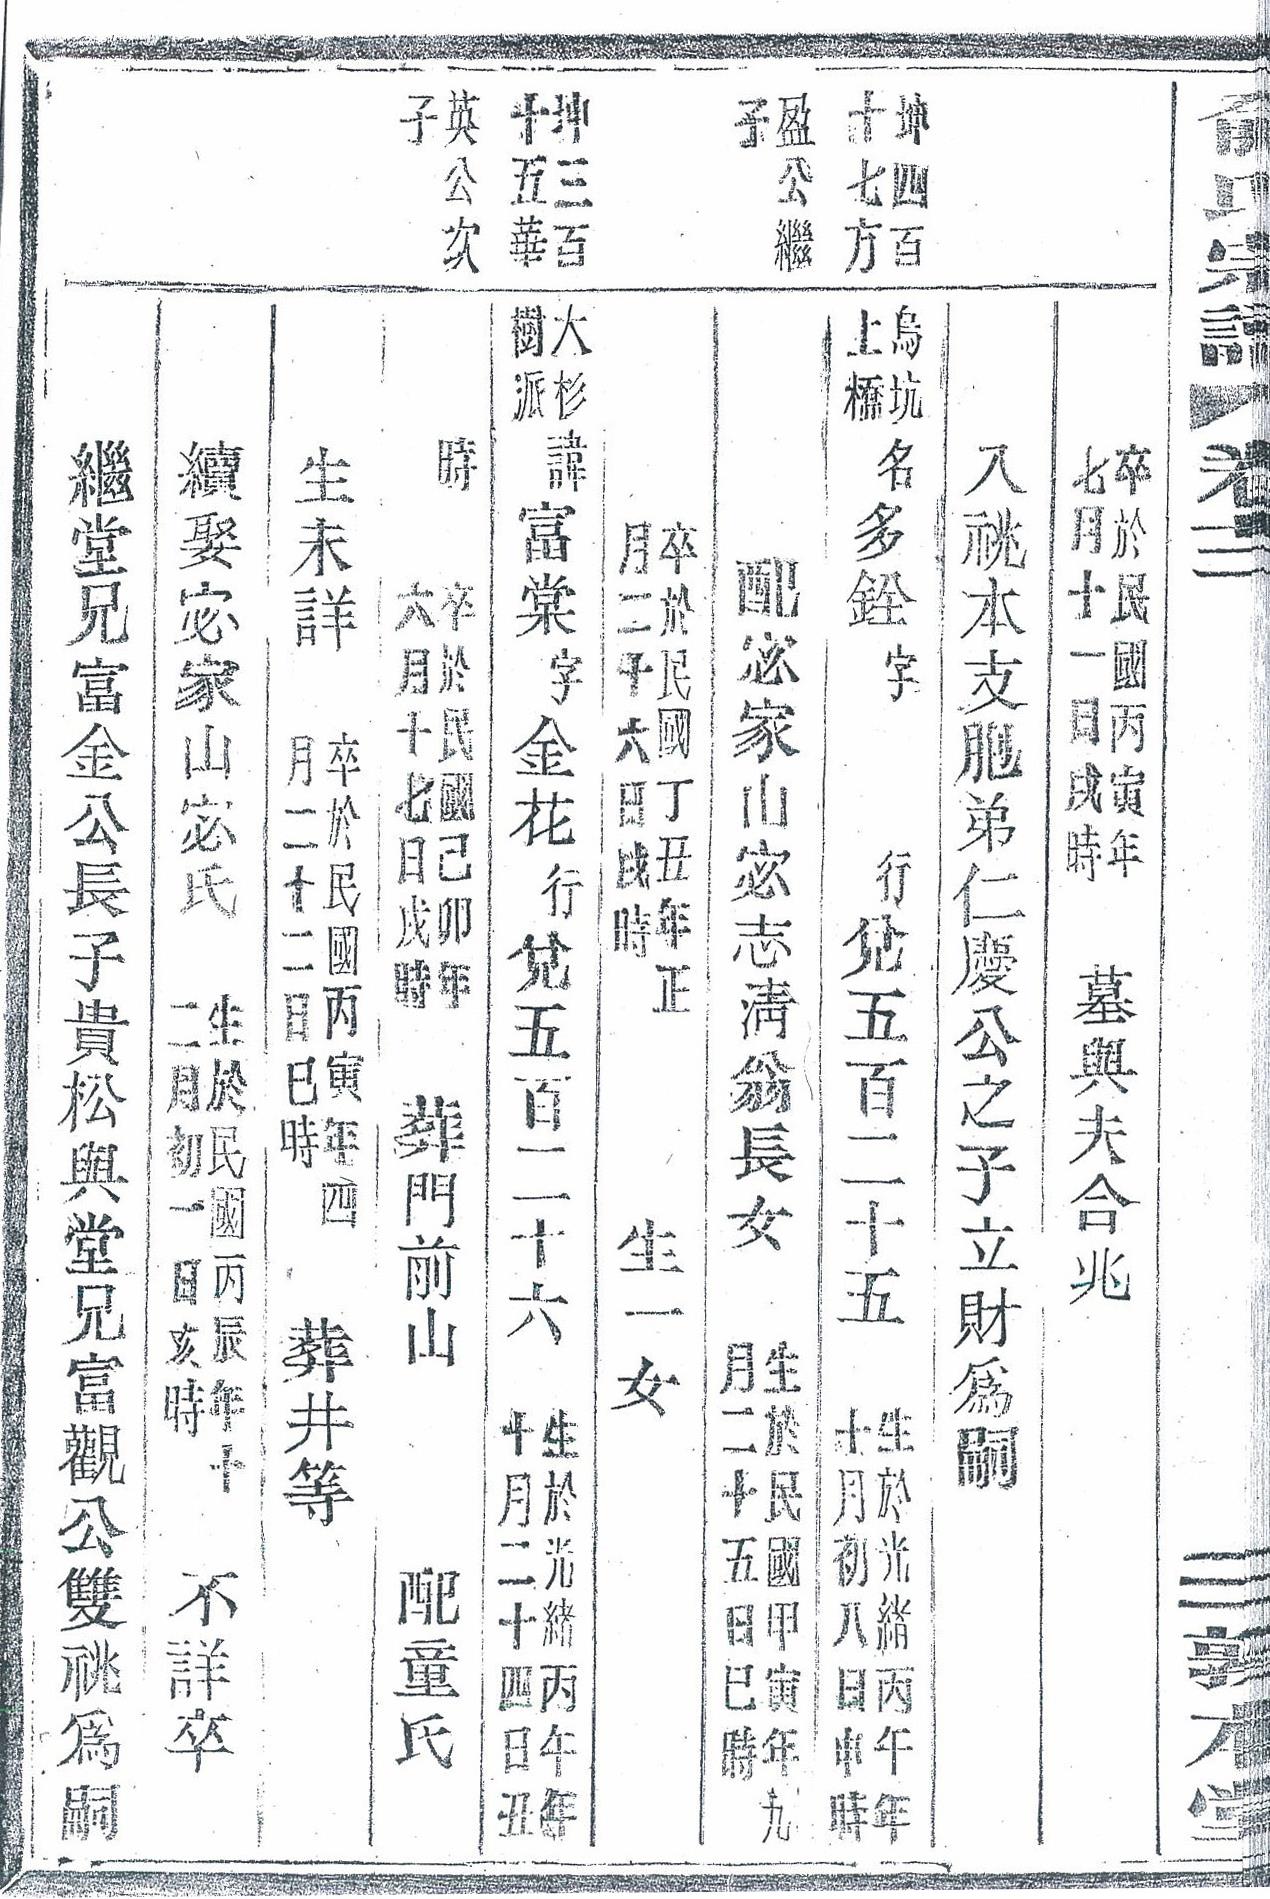 俞氏宗譜 卷三 三 敦本堂
卒於民國丙寅年七月十一日戌時 墓與夫合兆
入祧本支胞弟仁慶公之子立財爲嗣
坤四百十七方盈公繼子
烏坑上橋 名多銓 字 行兌五百二十五 生於光緒丙午年十月初八日申時
配宓家山宓志淸翁長女 生於民國甲寅年九月二十五日巳時
卒於民國丁丑年正月二十六日戌時 生一女
坤三百十五華英公次子
大杉樹派 諱富棠 字金花 行兌五百二十六 生於光緒丙午年十月二十四日丑
時 卒於民國己卯年六月十七日戌時 葬門前山 配童氏
生未詳 卒於民國丙寅年四月二十二日巳時 葬井等
續娶宓家山宓氏 生於民國丙辰年十二月初一日亥時 不詳卒
繼堂兄富金公長子貴松與堂兄富觀公雙祧爲嗣